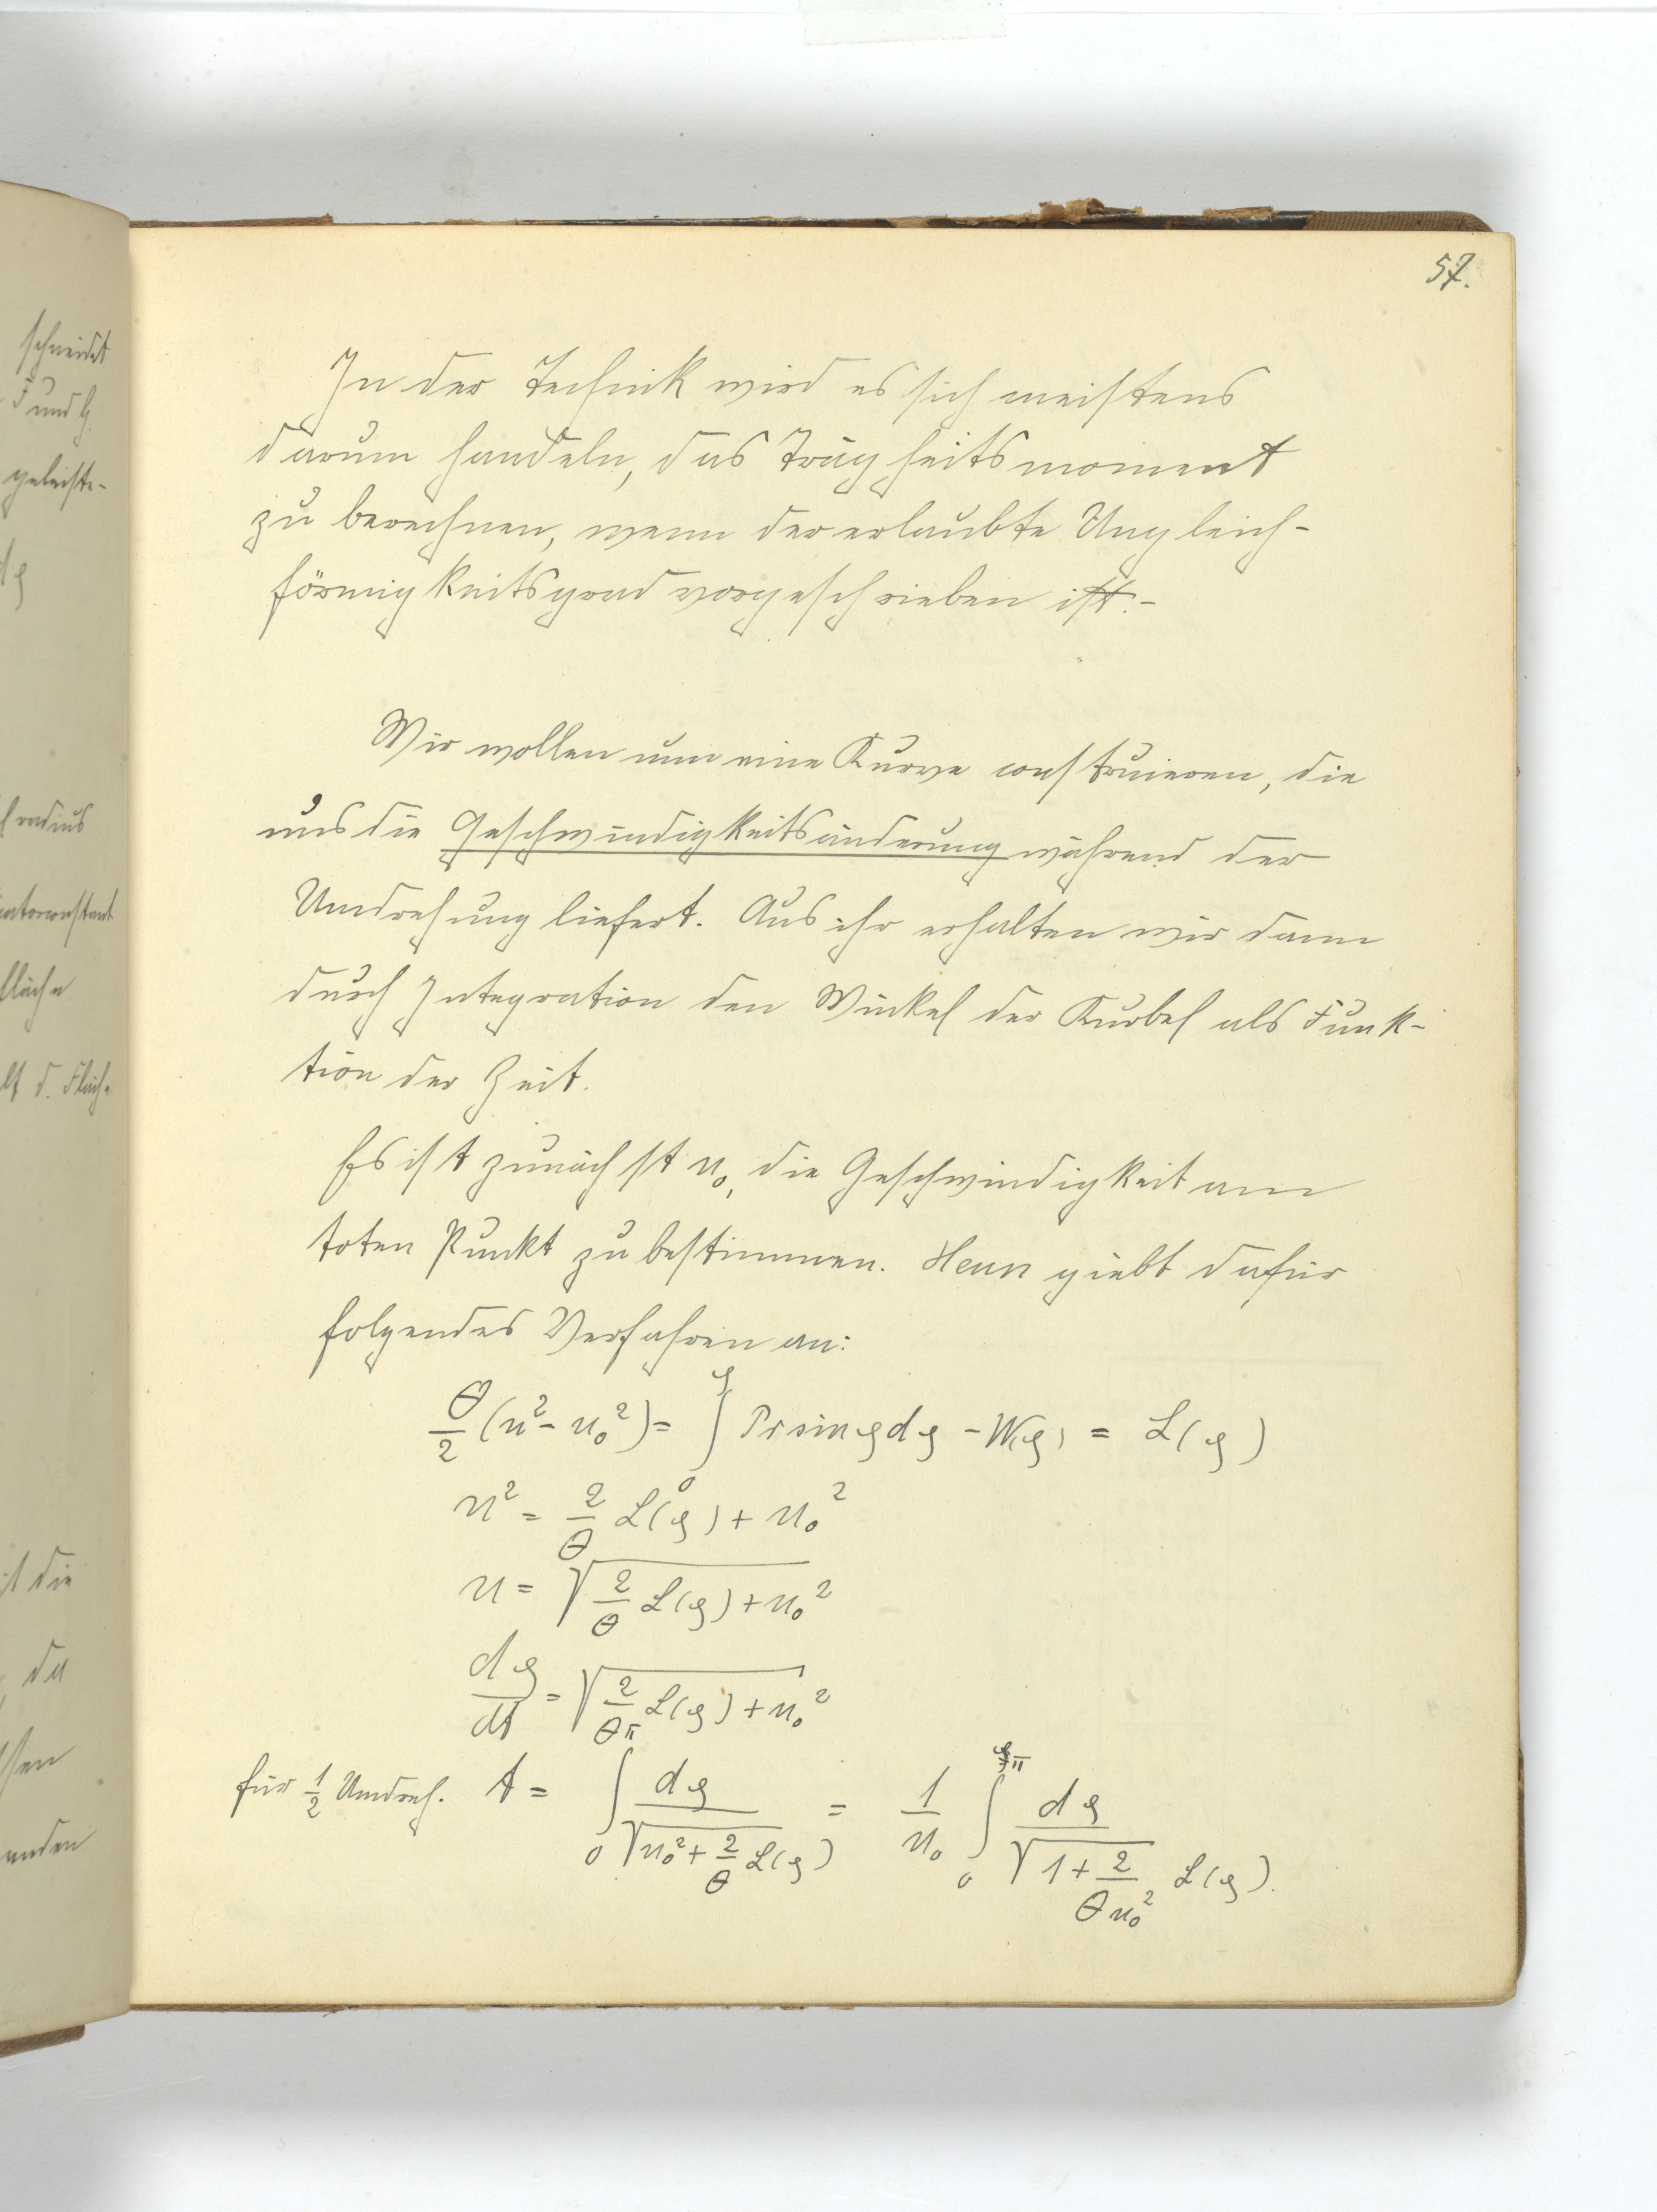 57.
schneidet
F und G.
geleiste-
radius
fläche
lt d. Fläche
it die
, da
anden
In der Technik wird es sich meistens
darum handeln, das Trägheitsmoment
zu berechnen, wenn der erlaubte Ungleich-
förmigkeitsgrad vorgeschrieben ist.-
Wir wollen nun eine Kurve construieren, die
uns die Geschwindigkeitsänderung während der
Umdrehung liefert. Aus ihr erhalten wir dann
durch Integration den Winkel der Kurbel als Funk-
tion der Zeit.
Es ist zunächst u₀, die Geschwindigkeit am
toten Punkt zu bestimmen. Heun giebt dafür
folgendes Verfahren an:
θ/2 (u² - u₀²) = ∫₀^φ Pr sin φ dφ - W(φ) = L(φ)
u² = 2/θ L(φ) + u₀²
u = √(2/θ L(φ) + u₀²)
dφ/dt = √(2/θ L(φ) + u₀²)
für 1/2 Umdreh. t = ∫₀^π dφ / √(u₀² + 2/θ L(φ)) = 1/u₀ ∫₀^π dφ / √(1 + 2/(θu₀²) L(φ)).